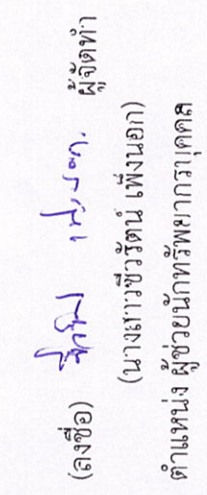 (ลงชื่อ) ผู้จัดทำ
(นางสาวชีวรัตน์ เพ็งนอก)
ตำแหน่ง ผู้ช่วยนักทรัพยากรบุคคล